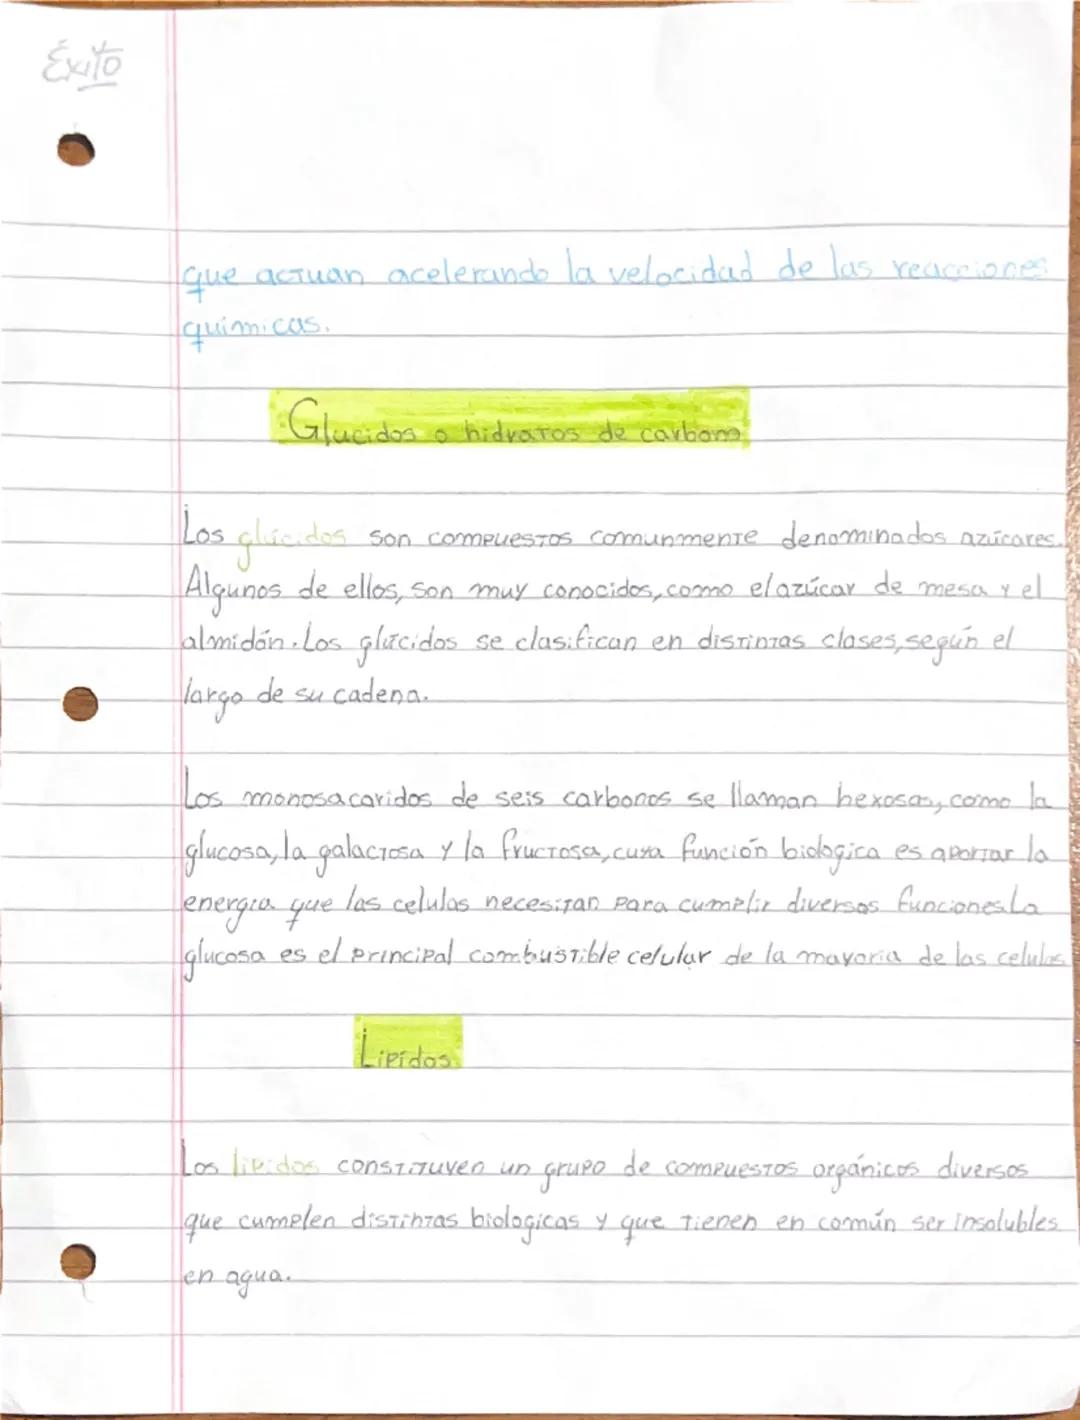 Éxito
que actuan acelerando la velocidad de las reacciones
quimicas.
Glucidos o hidratos de carbono
Los glúcidos son compuestos comunmente denominados azúcares.
Algunos de ellos, son muy conocidos, como el azúcar de mesa y el
almidón. Los glúcidos se clasifican en distintas clases, según el
largo de su cadena.
Los monosacaridos de seis carbonos se llaman hexosas, como la
glucosa, la galactosa y la fructosa, cuya función biologica es aportar la
energia que las celulas necesitan para cumplir diversas funciones. La
glucosa es el principal combustible celular de la mayoria de las celulas
Lipídos
Los lipidos constituyen un grupo de compuestos orgánicos diversos
que cumplen distintas biologicas y que tienen en común ser insolubles
en agua.